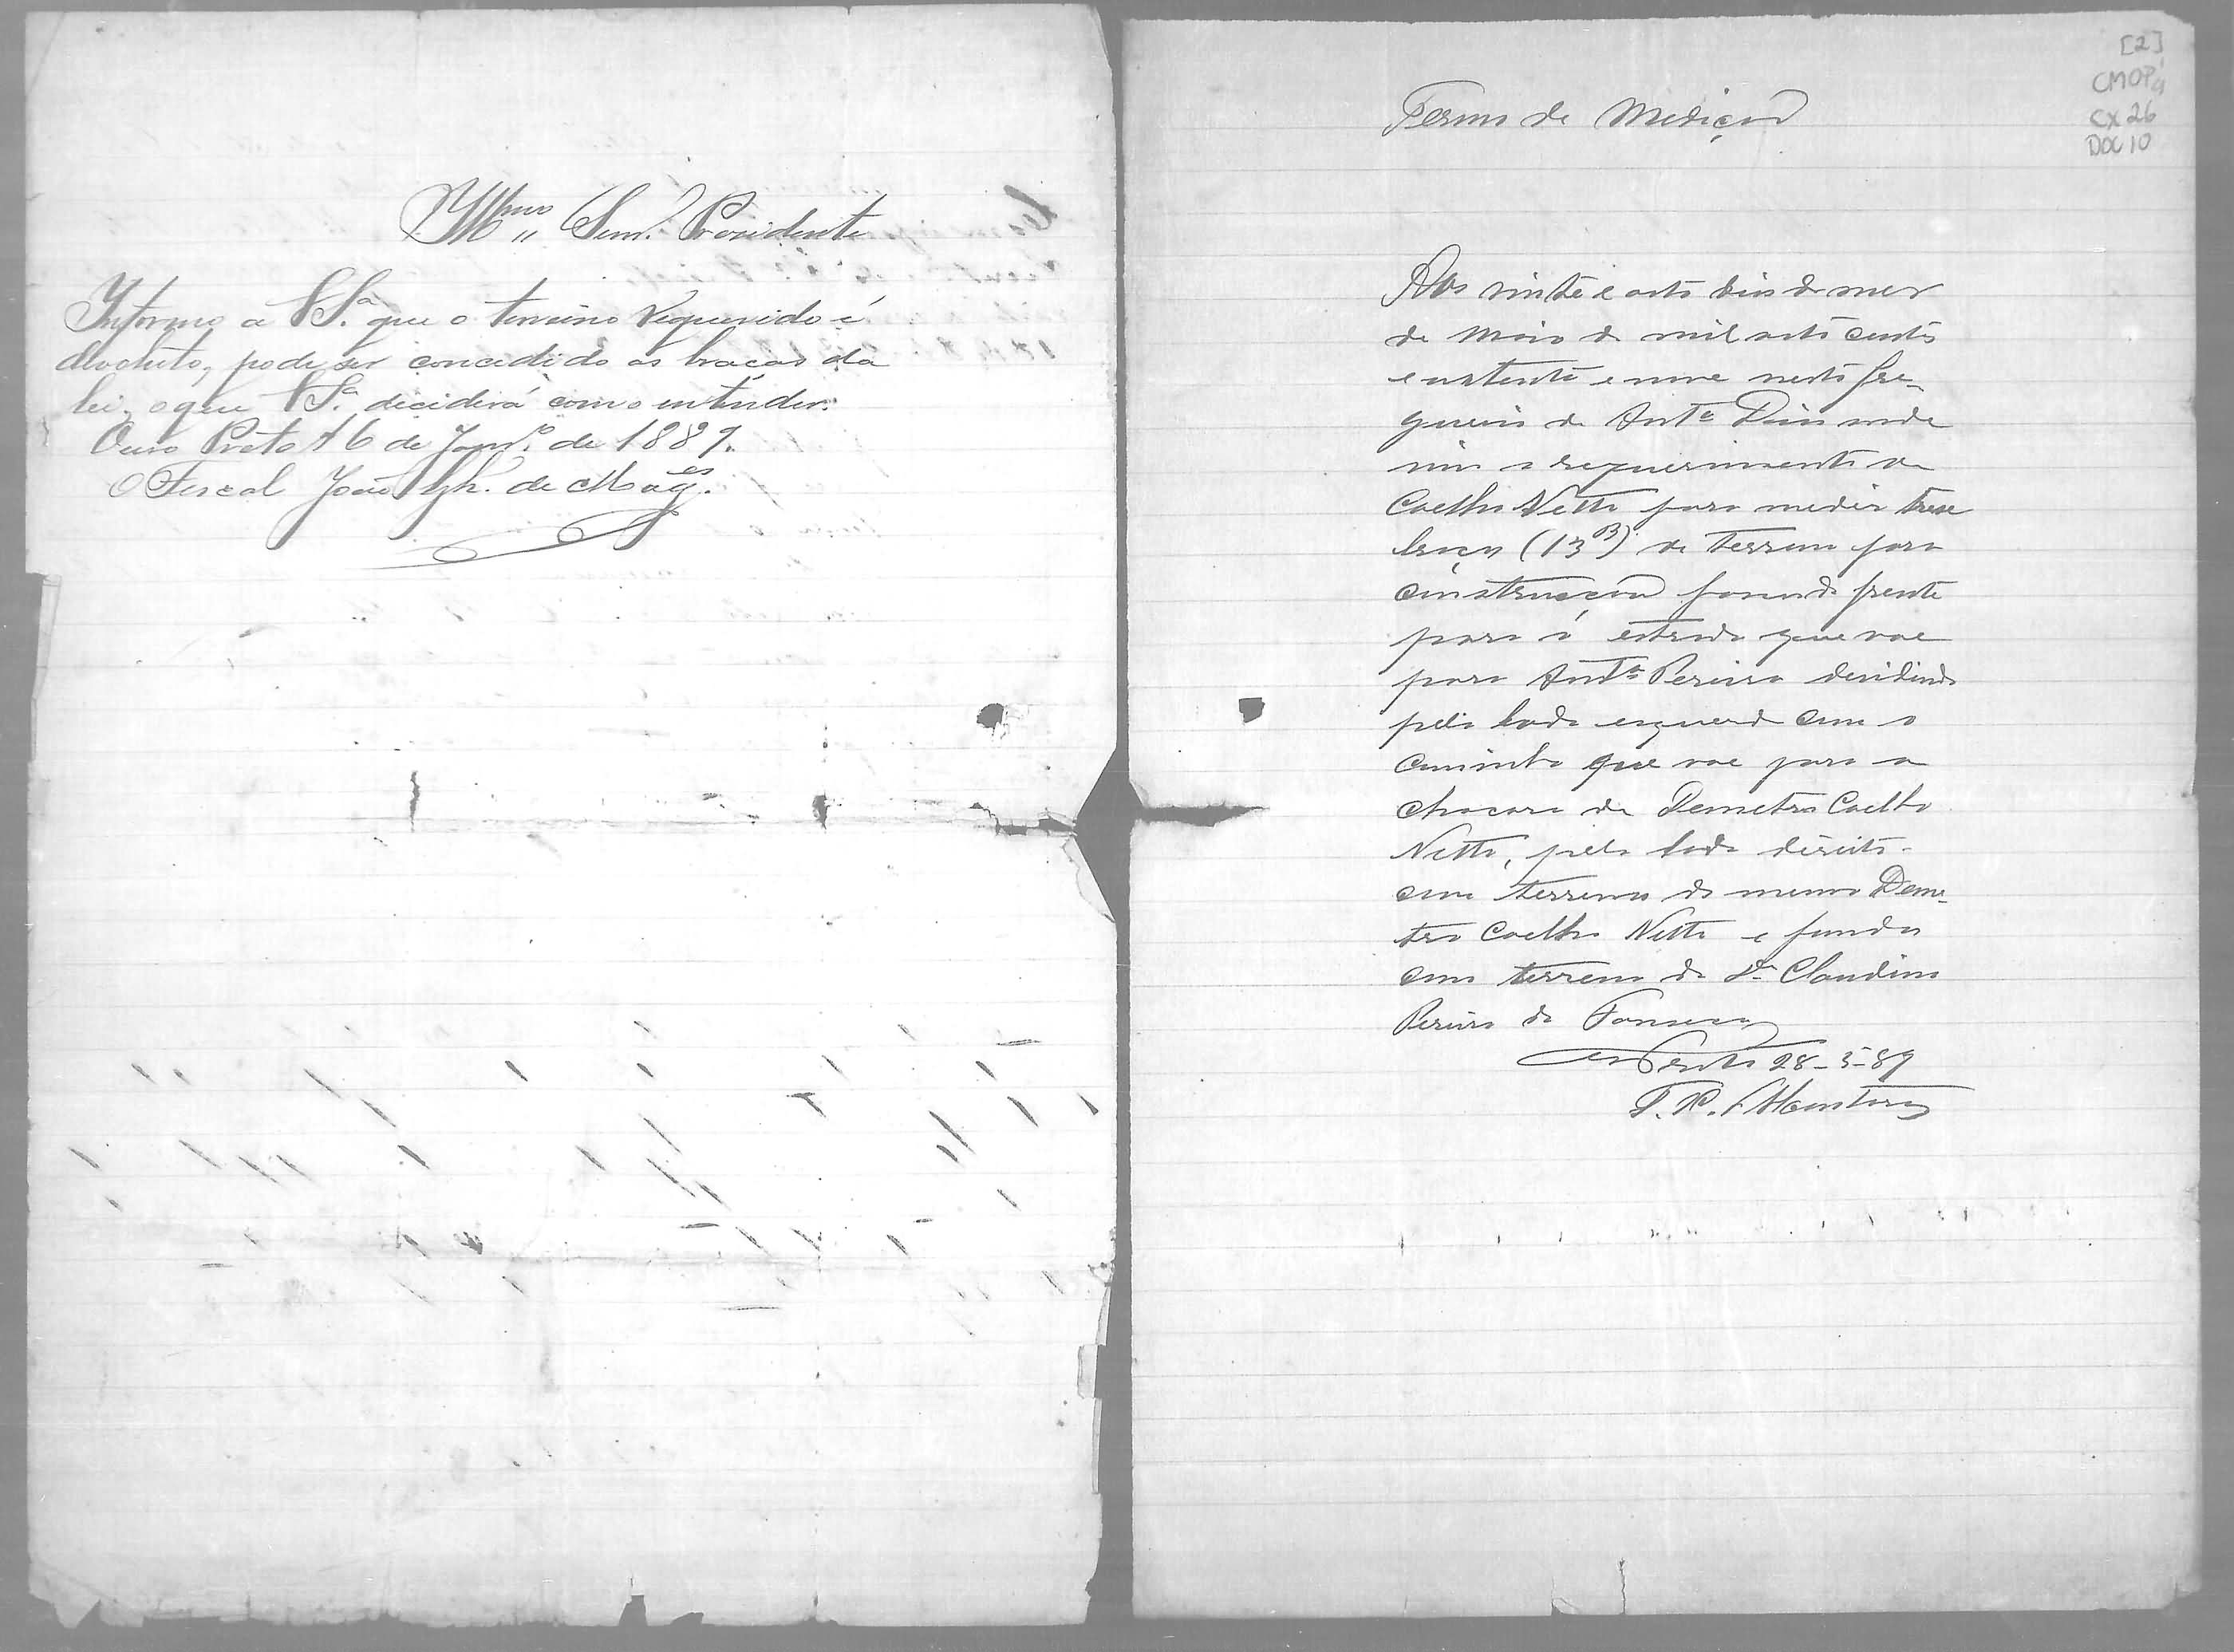 Illmo Senr. Presidente
Informo a VSª. que o terreno requerido é
devoluto, pode ser concedido as braças da
lei, o que VSª. decidirá como entender.
Ouro Preto 16 de Janrº. de 1889.
O Fiscal João de Mages.
[2]
CMOP
CX 26
DOC 10
Termo de Medição
Aos vinte e oito dias do mez
de Maio de mil oito centos
e oitenta e nove nesta fre-
guezia de Antº Dias onde
vim a requerimento de
Coelho Netto para medir treze
braças (13B) de terreno para
construcção fasendo frente
para a estrada que vae
para Antº Pereira dividindo
pelo lado esquerdo com o
caminho que vae para a
chacara de Demetrio Coelho
Netto, pelo lado direito
com terrenos do mesmo Deme-
trio Coelho Netto e fundos
com terreno de Dª Claudina
Pereira da Fonseca
28-5-89